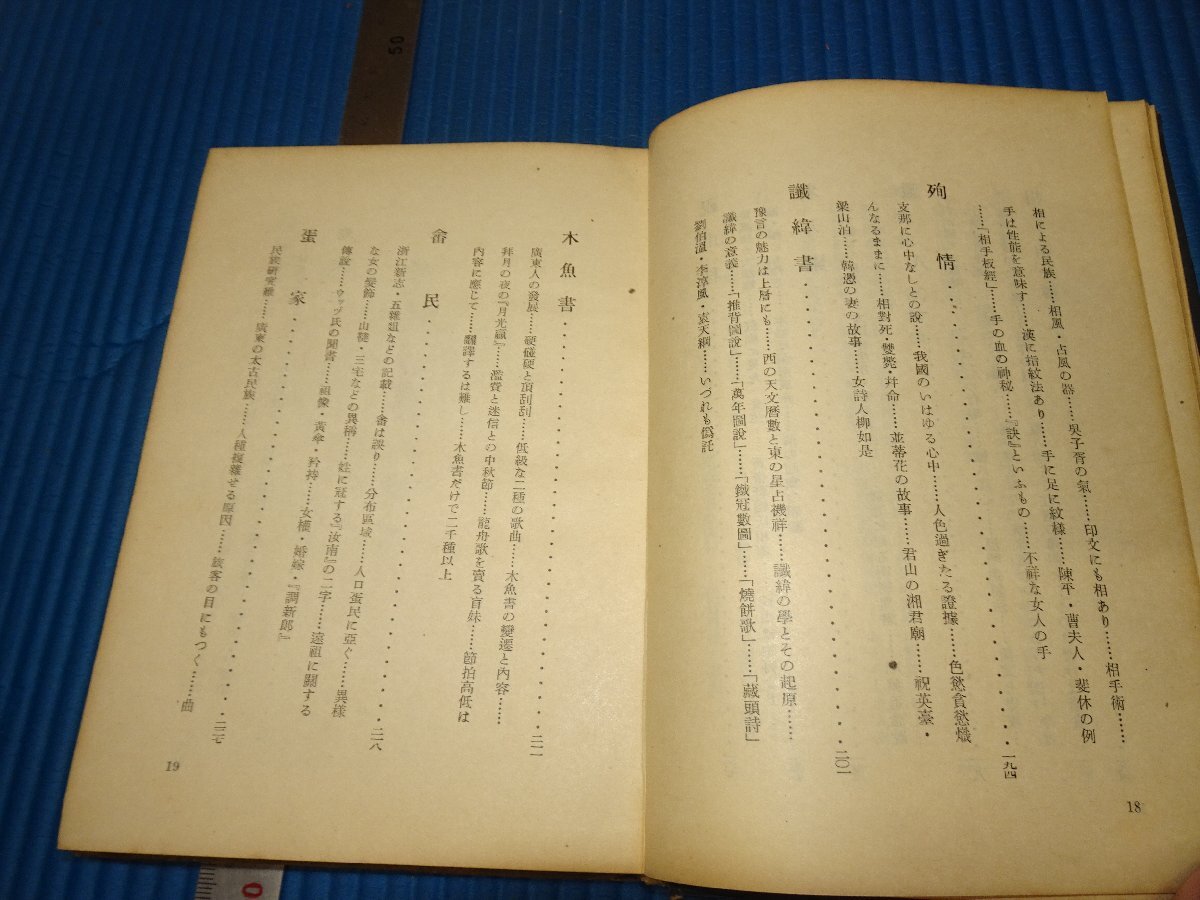 相による民族……相風・占風の器……吳子胥の氣……印文にも相あり……相手術……
手は性能を意味す……漢に指紋法あり……手に足に紋様……陳平・曹夫人・斐休の例
……「相手板經」……手の血の神秘……『訣』といふもの……不祥な女人の手
殉情・・・・・・一九四
支那に心中なしとの說……我國のいはゆる心中……人色過ぎたる證據……色慾貪慾熾
んなるままに……相對死・雙斃・幷命……並蒂花の故事……君山の湘君廟……祝英臺・
梁山泊……韓憑の妻の故事……女詩人柳如是
讖緯書・・・・・・二〇一
豫言の魅力は上層にも……西の天文曆數と東の星占禨祥……讖緯の學とその起原……
讖緯の意義……「推背圖說」……「萬年圖說」……「鐵冠數圖」……「燒餠歌」……「藏頭詩」
劉伯溫・李淳風・袁天綱……いづれも僞託
18
木魚書・・・・・・二一一
廣東人の發展……硬碰硬と頂刮刮……低級な二種の歌曲……木魚書の變遷と內容……
拜月の夜の『月光諷』……濫費と迷信との中秋節……龍舟歌を賣る盲妹……節拍高低は
內容に應じて……飜譯するは難し……木魚書だけで二千種以上
畲民・・・・・・二一八
浙江新志・五雜俎などの記載……畲は誤り……分布區域……人口蛋民に亞ぐ……異樣
な女の髮飾……山韃・三宅などの異稱……姓に冠する『汝南』の二字……遠祖に關する
傳說……ウッヅ氏の聞書……祖像・黃傘・矜袴……女權・婚嫁・『調新郞』
蛋家・・・・・・二二七
民族硏究難……廣東の太古民族……人種複雜せる原因……旅客の目にもつく……曲
19
50
0